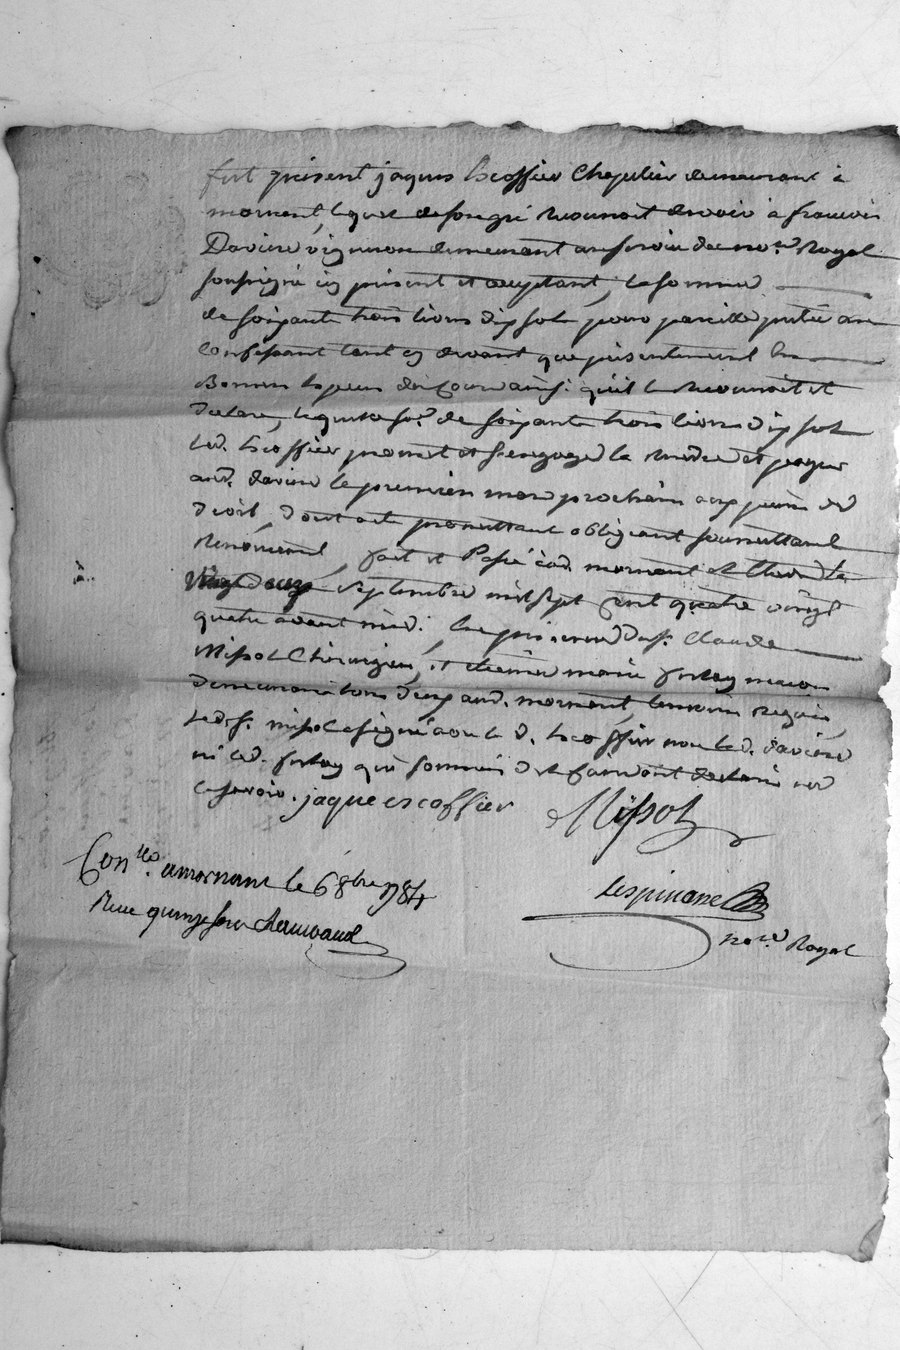 fut présent jaques Escoffier Chapelier demeurant à
mornant, lequel de son gré reconnoit devoir à francois
Daviere vigneron demeurant au no.re Royal
soussigné icy présent et acceptant, la somme
de soixante trois livres dix sol pour pareille prêtée au
confessant tant cy devant que présentement en
Bonnes Espèces de Cours ainsi qu'il le reconnoit et
declare, laquelle so.e de soixante trois livres dix sol
led. Escoffier promet et s'engage la rendre et payer
aud. daviere le premier mars prochain aux peines de
droit, dont acte promettant obligeant soumettant
renoncant, fait et Passé aud. mornant et Etude le
septembre mil sept cent quatre vingt
quatre avant midi. En présence du s.r Claude
Missol Chirurgien, et etienne marie maçon
demeurant tous deux aud. mornant, temoins requis,
led. s.r missol a signé avec le d. Escoffier non led. daviere
ni led. qui sommés de le faire ont declaré ne
le savoir. jaque escoffier Missol
Con.llé a mornant le 6 8bre 1784
Reçu quinze sous
Lespinasse
No.re Royal